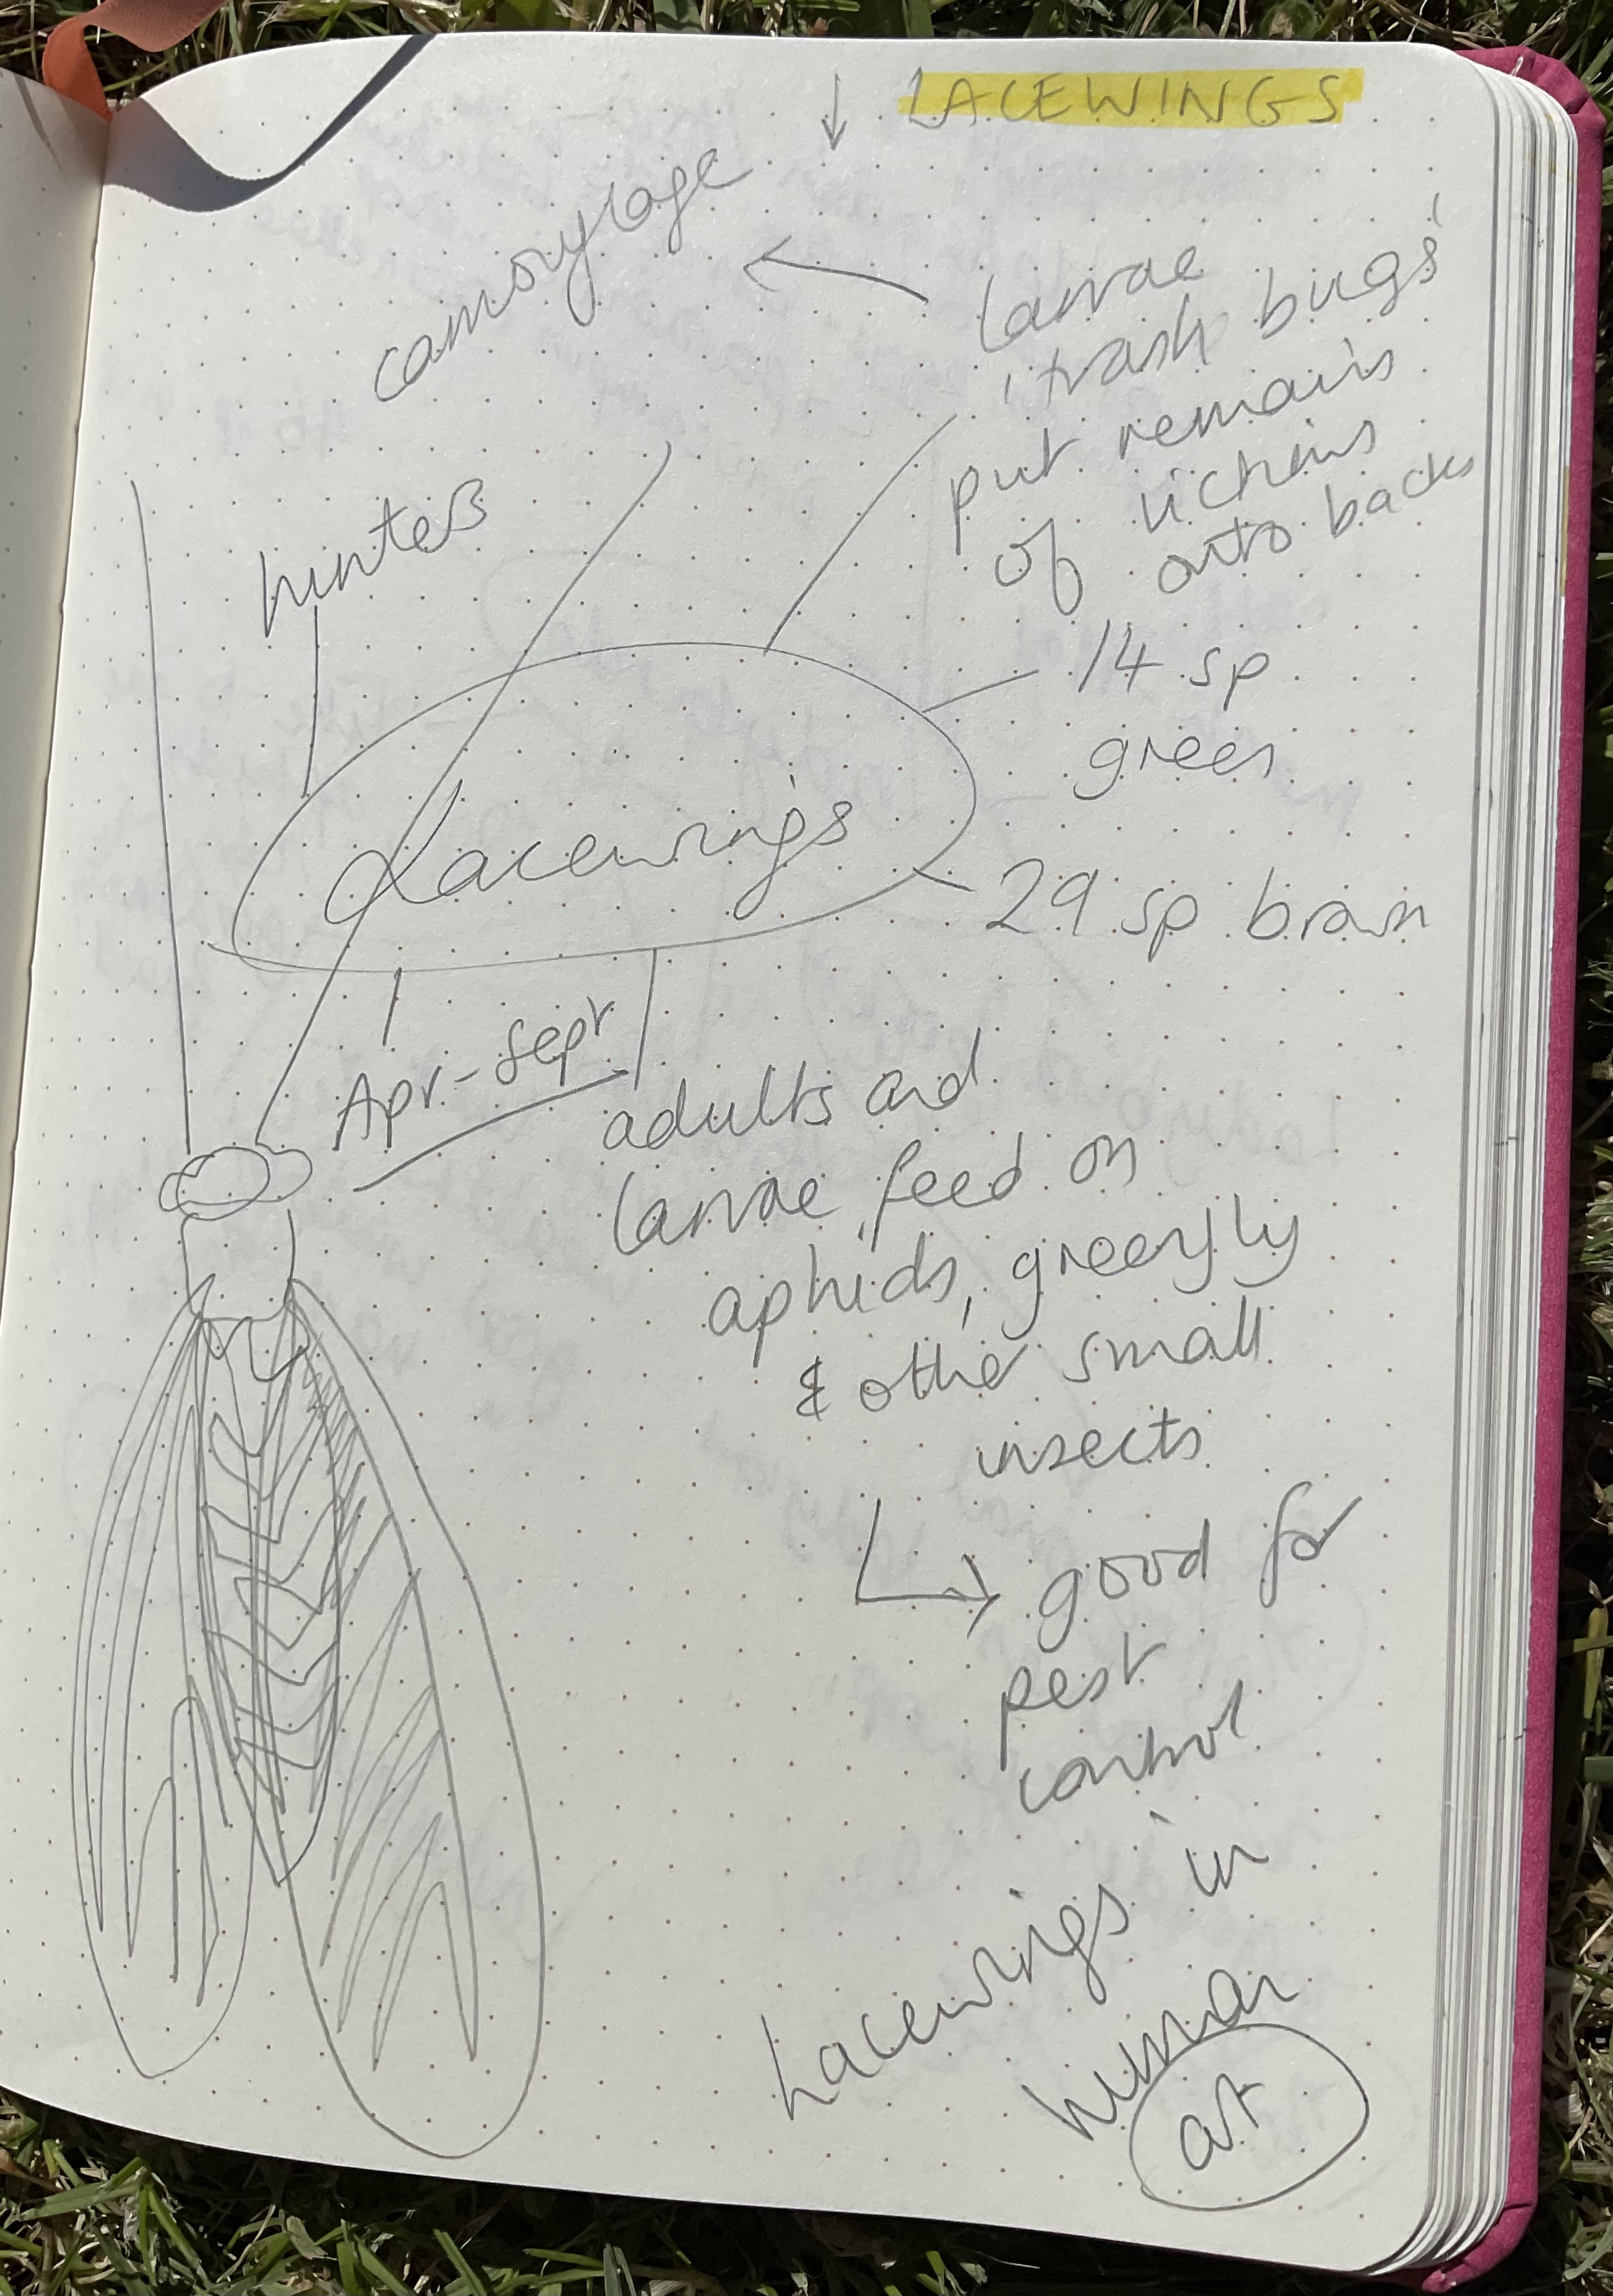 LACEWINGS
camouflage
larvae
'trash bugs'
put remains
of victims
onto backs
hunters
14 sp
green
Lacewings
29 sp brown
Apr-Sept
adults and
larvae feed on
aphids, greenfly
& other small
insects
good for
pest
control
Lacewings in
human
art